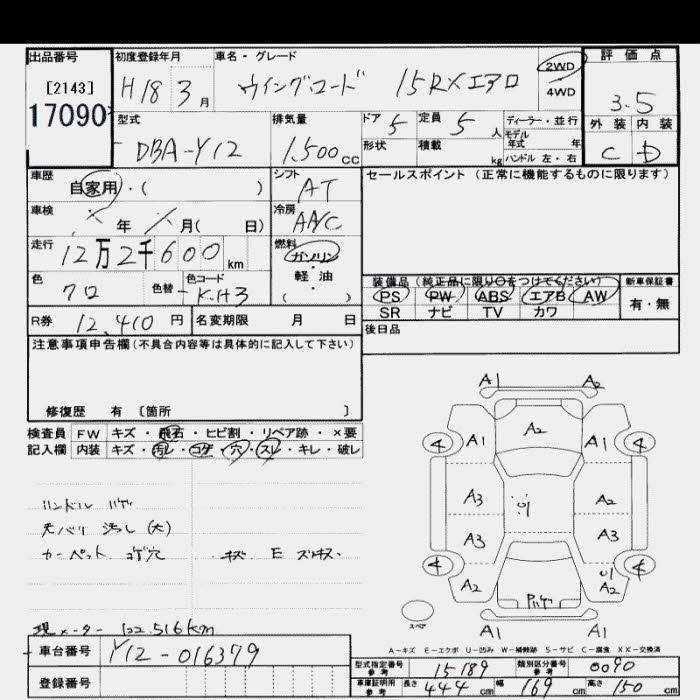 出品番号 初度登録年月 車名・グレード 評価点
[2143] H18 3月 ウイングロード 15RXエアロ 2WD 4WD 3.5
17090
型式 排気量 ドア 5 定員 5人 ディーラー・並行 外装 内装
DBA-Y12 1,500cc 形状 積載 kg モデル年式 年 ハンドル 左・右 C D
車歴 自家用・( ) シフト AT セールスポイント (正常に機能するものに限ります)
車検 年 月( 日) 冷房 AAC
走行 12万2千600km 燃料 ガソリン・軽・油 ( )
色 クロ 色替 色コード KH3
装備品 (純正品に限り○をつけてください) 新車保証書
PS PW ABS エアB AW 有・無
SR ナビ TV カワ
R券 12,410円 名変期限 月 日 後日品
注意事項申告欄(不具合内容等は具体的に記入して下さい)
修復歴 有 〔箇所 〕
検査員 FW キズ・飛石・ヒビ割・リペア跡・×要
記入欄 内装 キズ・汚レ・コゲ・穴・スレ・キレ・破レ
ハンドル ハゲ
天バリ 汚レ(大)
カーペット コゲ穴 キズ E スリキズ
現メーター 122,516km
車台番号 Y12-016379
登録番号
A1 A2
4 A1 A2 A1 4
A3 U1 A2
A3 A3
4 A2 U1 A2 4
スペア A1 A1
A-キズ E-エクボ U-凹み W-補修跡 S-サビ C-腐食 XX-交換済
型式指定番号 参考 15189 類別区分番号 参考 0090
車庫証明用 参考 長さ 444cm 幅 169cm 高さ 150cm